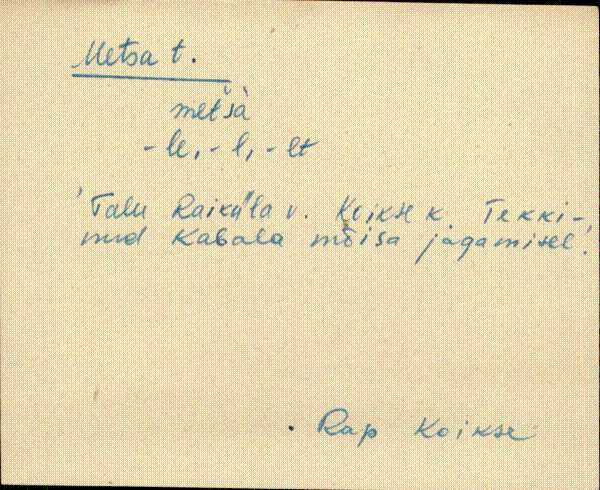 Metsa t.
metsà
-le, -l, -lt
Talu Raikküla v. Koikse k. Tekki-
nud Kabala mõisa jagamisel.
Rap Koikse